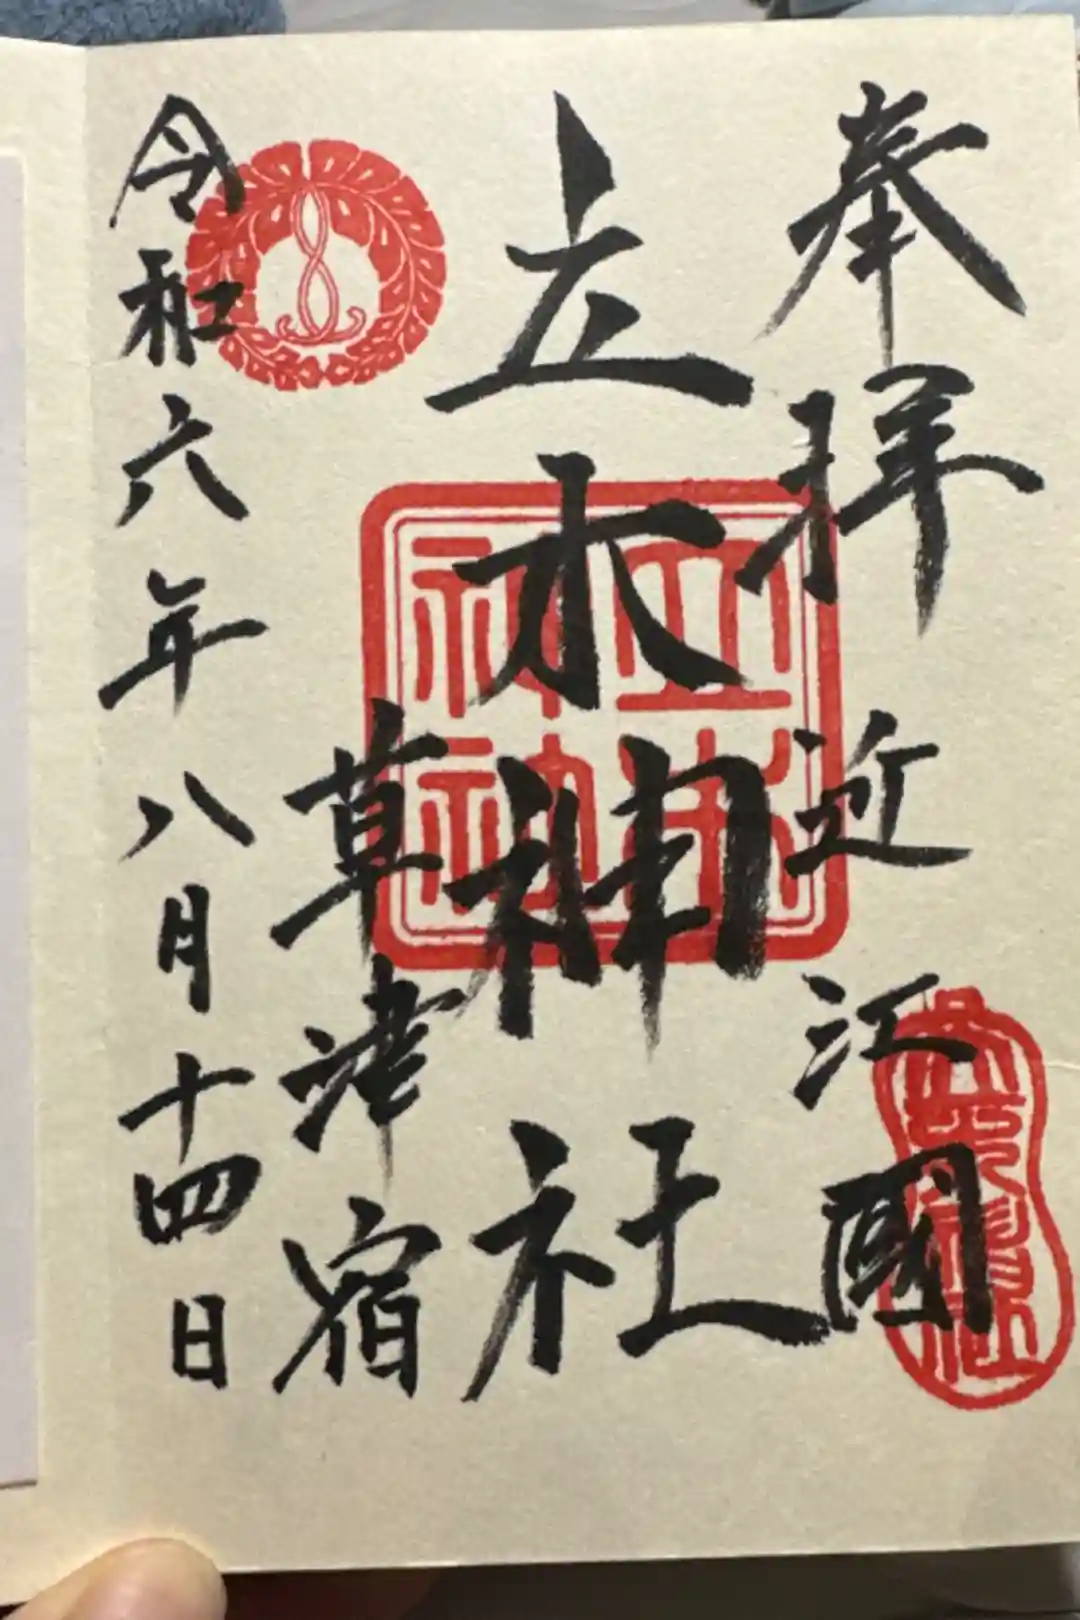 奉拝
近江國
立木神社
立木神社
草津宿
令和六年八月十四日